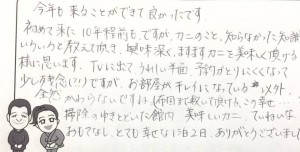 今年も来ることができて良かったです。
初めて来た10年程前も、ですが、カニのこと、知らなかった知識
いろいろと教えて頂き、興味深く、ますますカニを美味しく頂ける
様に思います。TVに出て、うれしい半面、予約がとりにくくなって
少し残念(!!)ですが、お部屋が キレイになっている メタト、
全然 かわらないですね(布団まで敷いて頂けて、この幸せ…
掃除のゆきとどいた館内、美味しいカニ、ていねいな
おもてなし、とても幸せな1泊2日、ありがとうございました